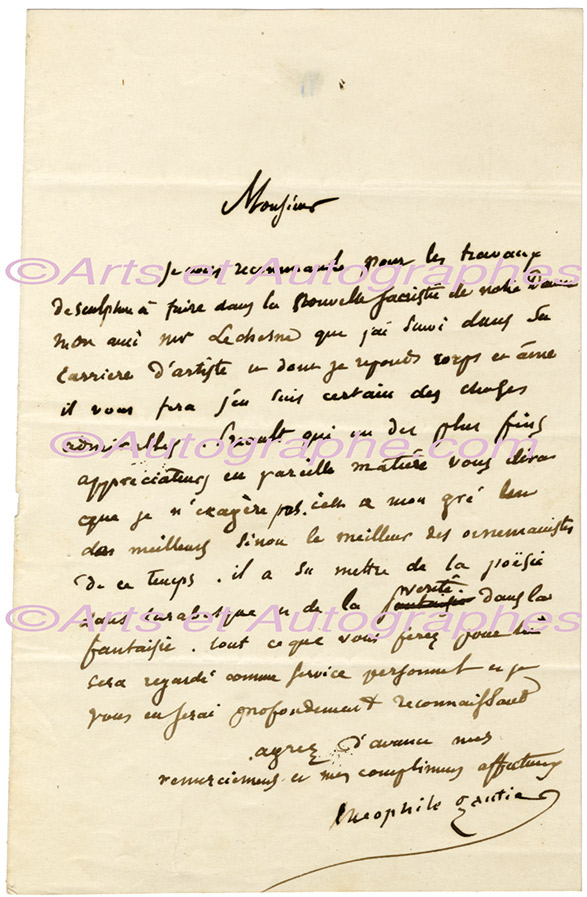 Monsieur
Je vous recommande pour les travaux
de sculpture à faire dans la nouvelle sacristie de notre Dame
mon ami mr Lechesne que j'ai suivi dans sa
carriere d'artiste et dont je reponds corps et âme
il vous fera j'en suis certain des choses
admirables. qui est un des plus fins
appréciateurs en pareille matière vous dira
que je n'exagère pas. c'est a mon gré l'un
des meilleurs sinon le meilleur des ornemanistes
de ce temps. il a su mettre de la poësie
dans l'arabesque et de la fantaisie verité dans la
fantaisie. tout ce que vous ferez pour lui
sera regardé comme service personnel et je
vous en serai profondement reconnaissant
agreez d'avance mes
remerciemens et mes complimens affectueux
theophile Gautier
©Arts et Autographes
©Autographe.com
©Arts et Autographes